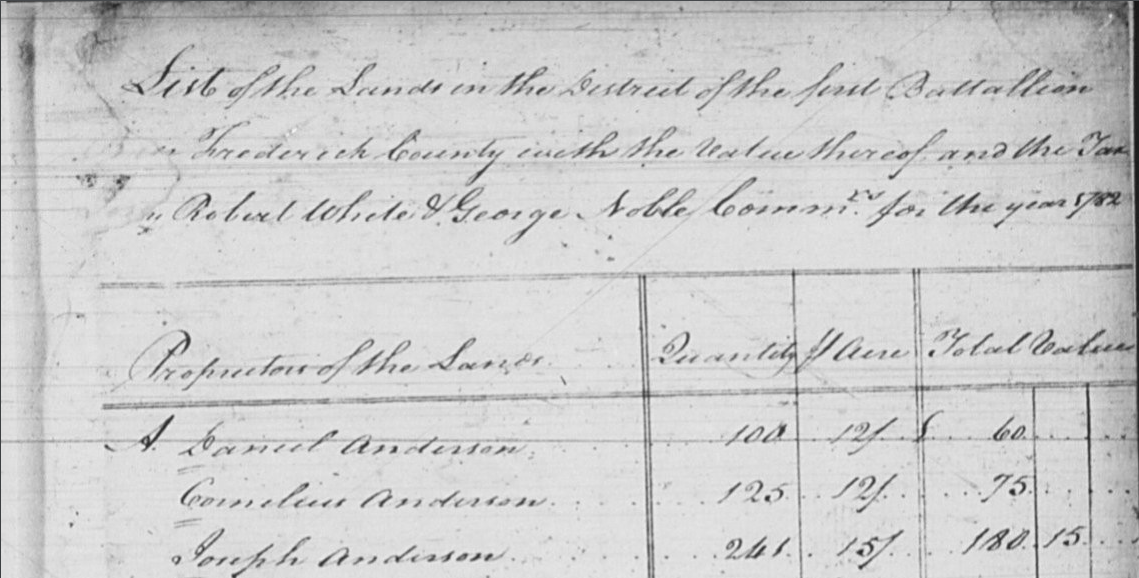 List of the Lands in the District of the first Battallion
Frederick County with the Value thereof and the Tax
Robert White & George Noble Commrs. for the year 1782
Proprietors of the Lands Quantity ℔ Acre Total Value
A. Daniel Anderson 100 12/ £ 60
Cornelius Anderson 125 12/ 75
Joseph Anderson 241 15/ 180 15